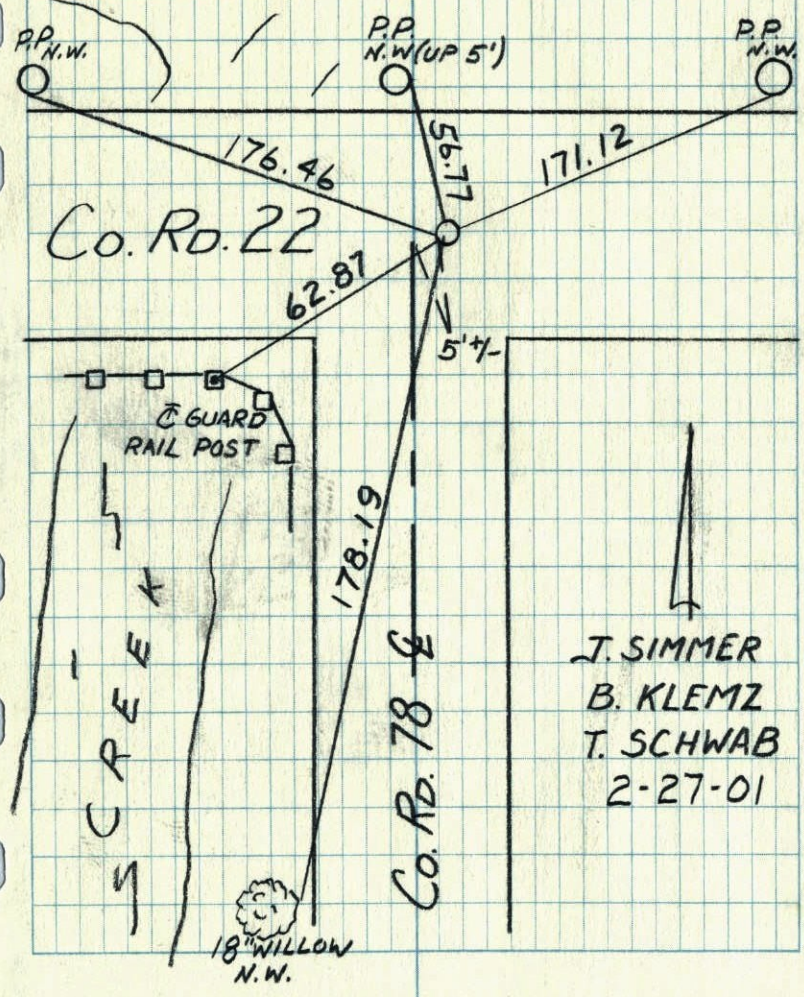 P.P.
N.W.
P.P.
N.W (UP 5')
P.P.
N.W.
176.46
56.77
171.12
Co. RD. 22
62.87
5'+/-
GUARD
RAIL POST
178.19
CREEK
Co. RD. 78 ℄
J. SIMMER
B. KLEMZ
T. SCHWAB
2-27-01
18" WILLOW
N.W.